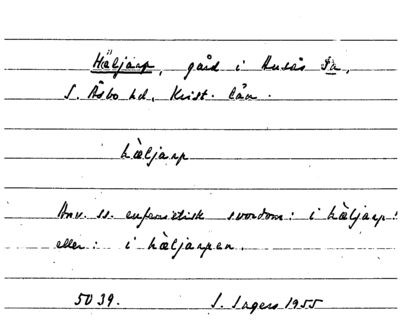 Häljarp, gård i Ausås sn,
S. Åsbo hd, Krist. län.
hàljarp
Anv. ss. eufemistisk svordom: i hàljarp!
eller: i hàljarpen.
5039. S. Ingers 1955